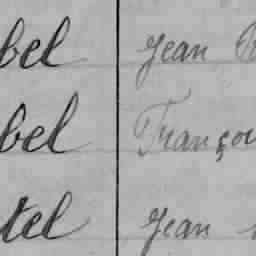 bel Jean
bel Franço
tel Jean